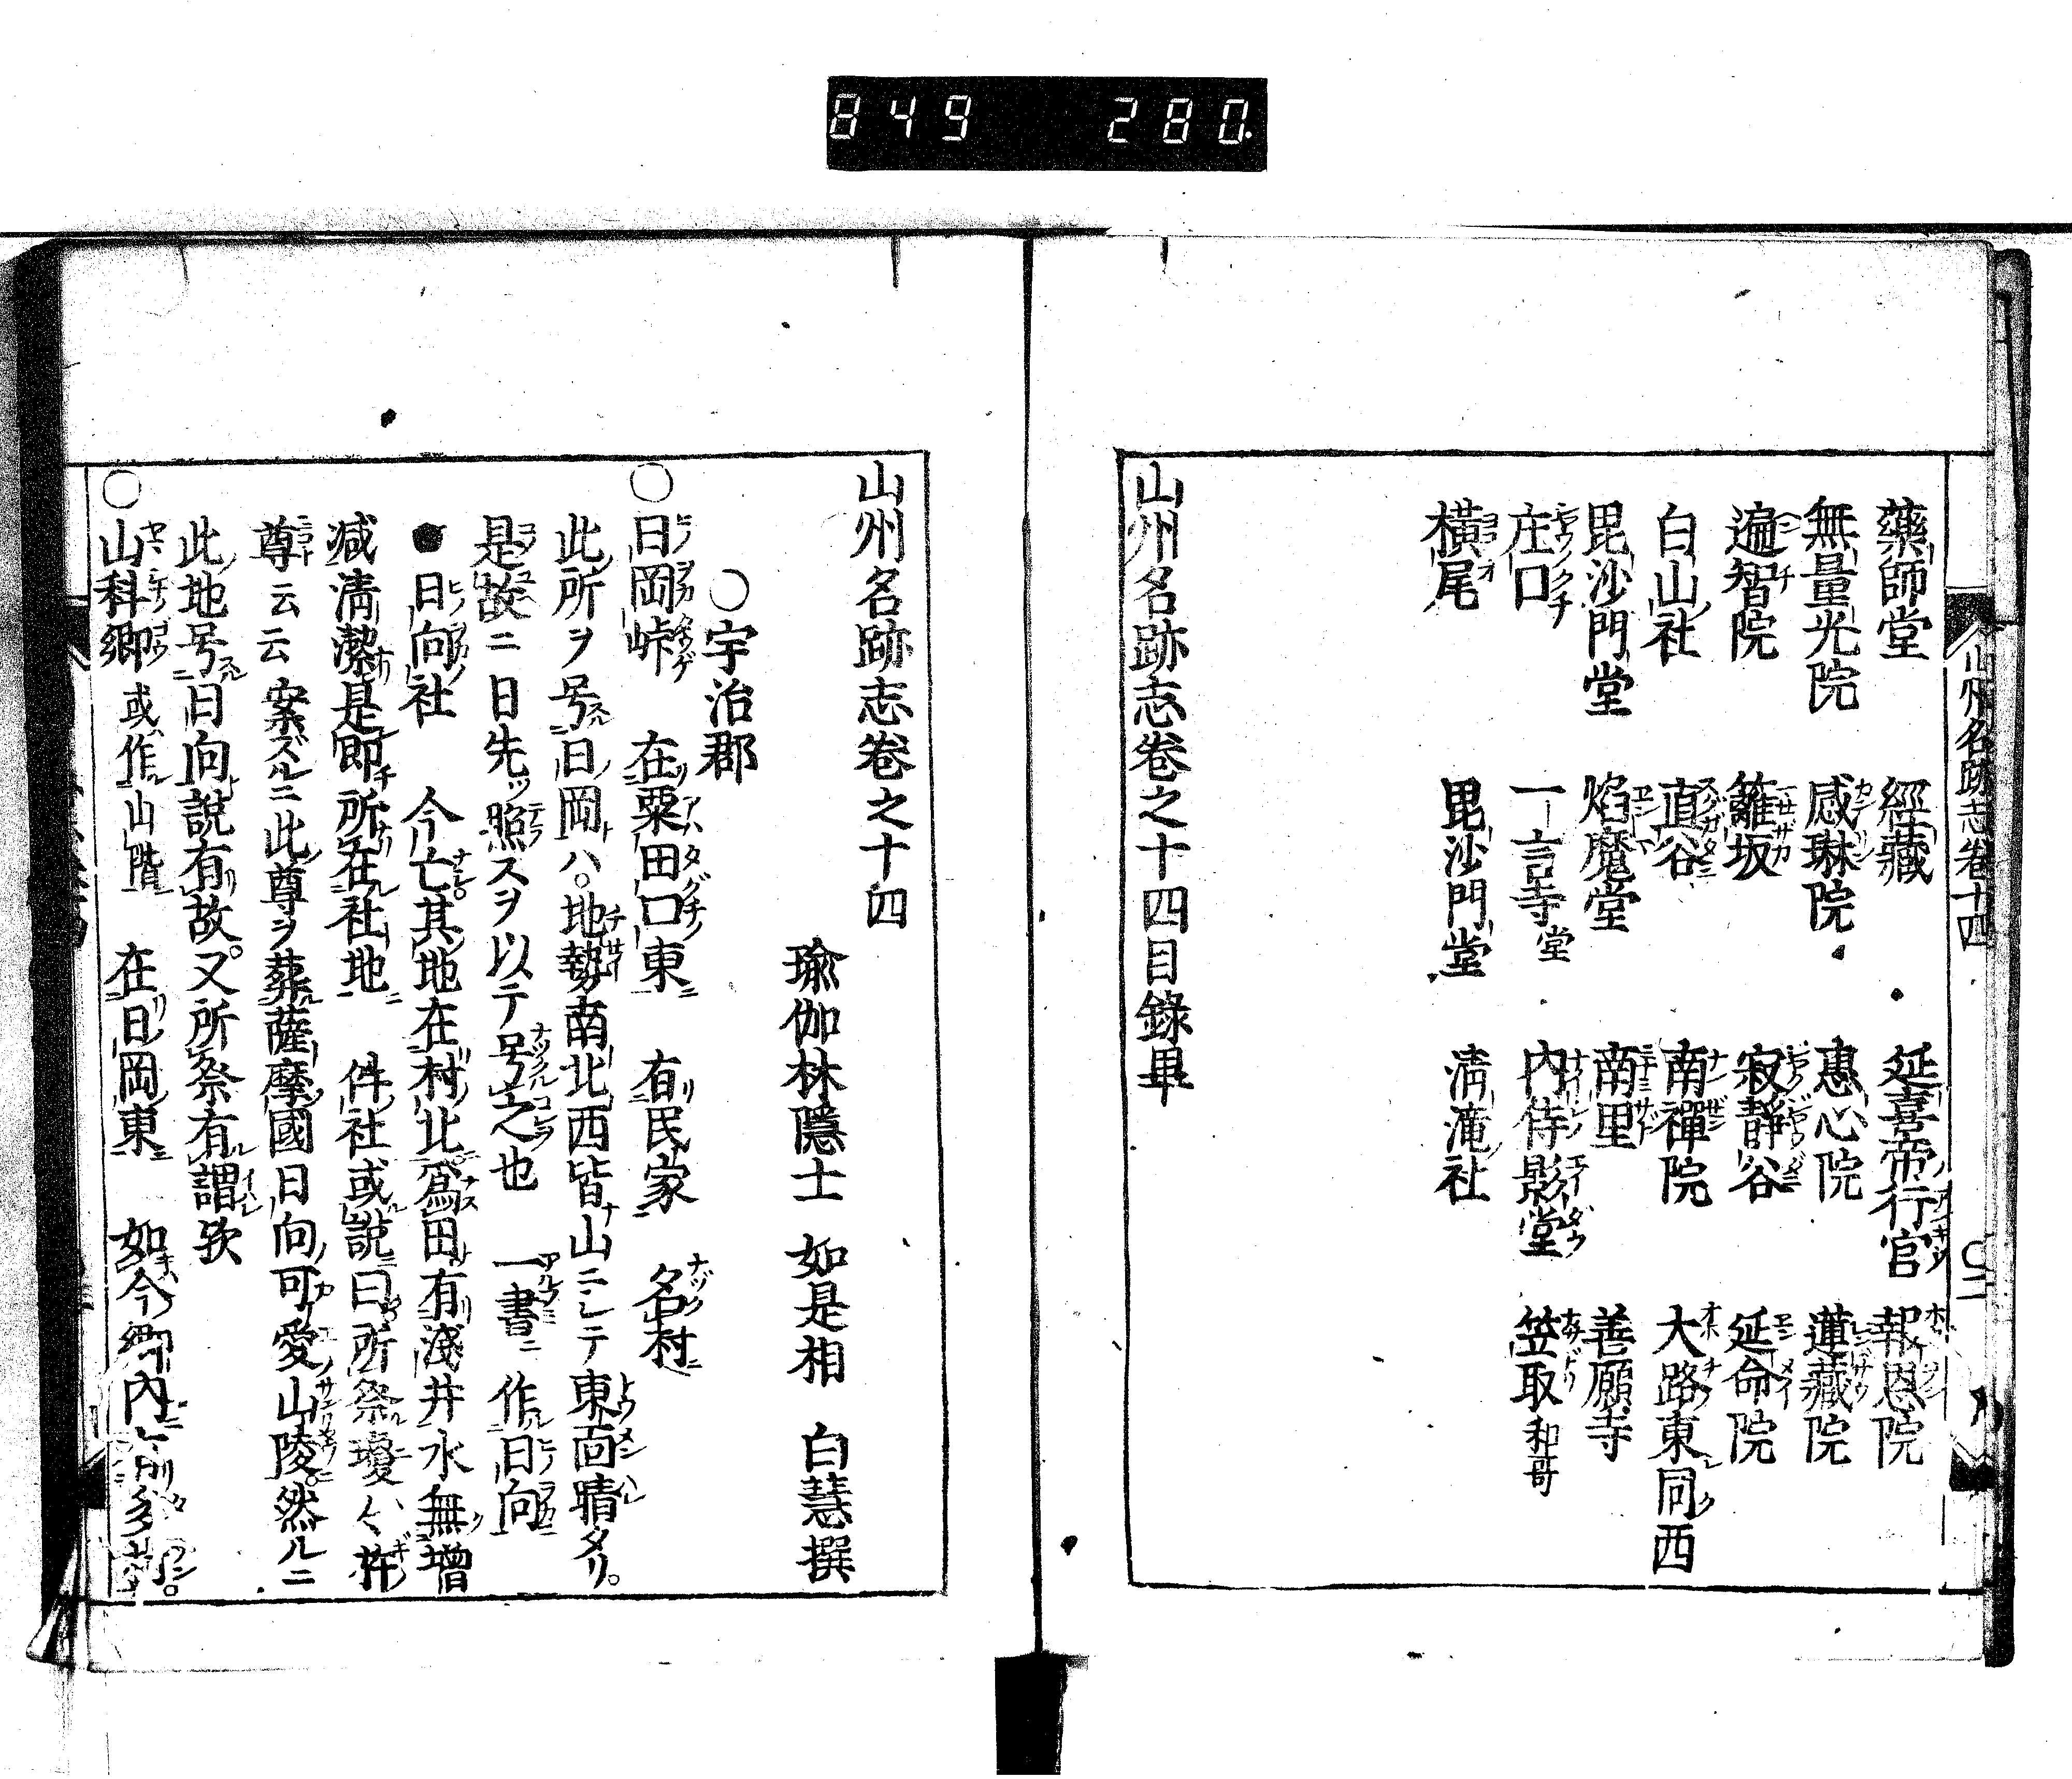 849 280.
山州名跡志卷十四
藥師堂 經藏 延喜帝行宮 報恩院
無量光院 感琳院 惠心院 蓮藏院
遍智院 籬坂 寂靜谷 延命院
白山社 直谷 南禪院 大路東同西
毘沙門堂 焰魔堂 南里 善願寺
庄口 一言寺堂 內侍影堂 笠取和哥
橫尾 毘沙門堂 淸滝社
山州名跡志卷之十四目錄畢
山州名跡志卷之十四
瑜伽林隱士 如是相 白慧撰
○宇治郡
○日岡峠 在粟田口東 有民家 名村
此所ヲ号日岡ハ。地勢南北西皆山ニシテ東面晴タリ。
是故ニ日先ッ照スヲ以テ号之也 一書ニ作日向
●日向社 今亡。其地在村北爲田有淺井水無增
减淸潔是卽所在社地 件社或說曰所祭瓊々杵
尊云云案ズルニ此尊ヲ葬薩摩國日向可愛山陵。然ルニ
此地号日向說有故。又所祭有謂欤
○山科鄉 或作山階 在日岡東 如今鄉內